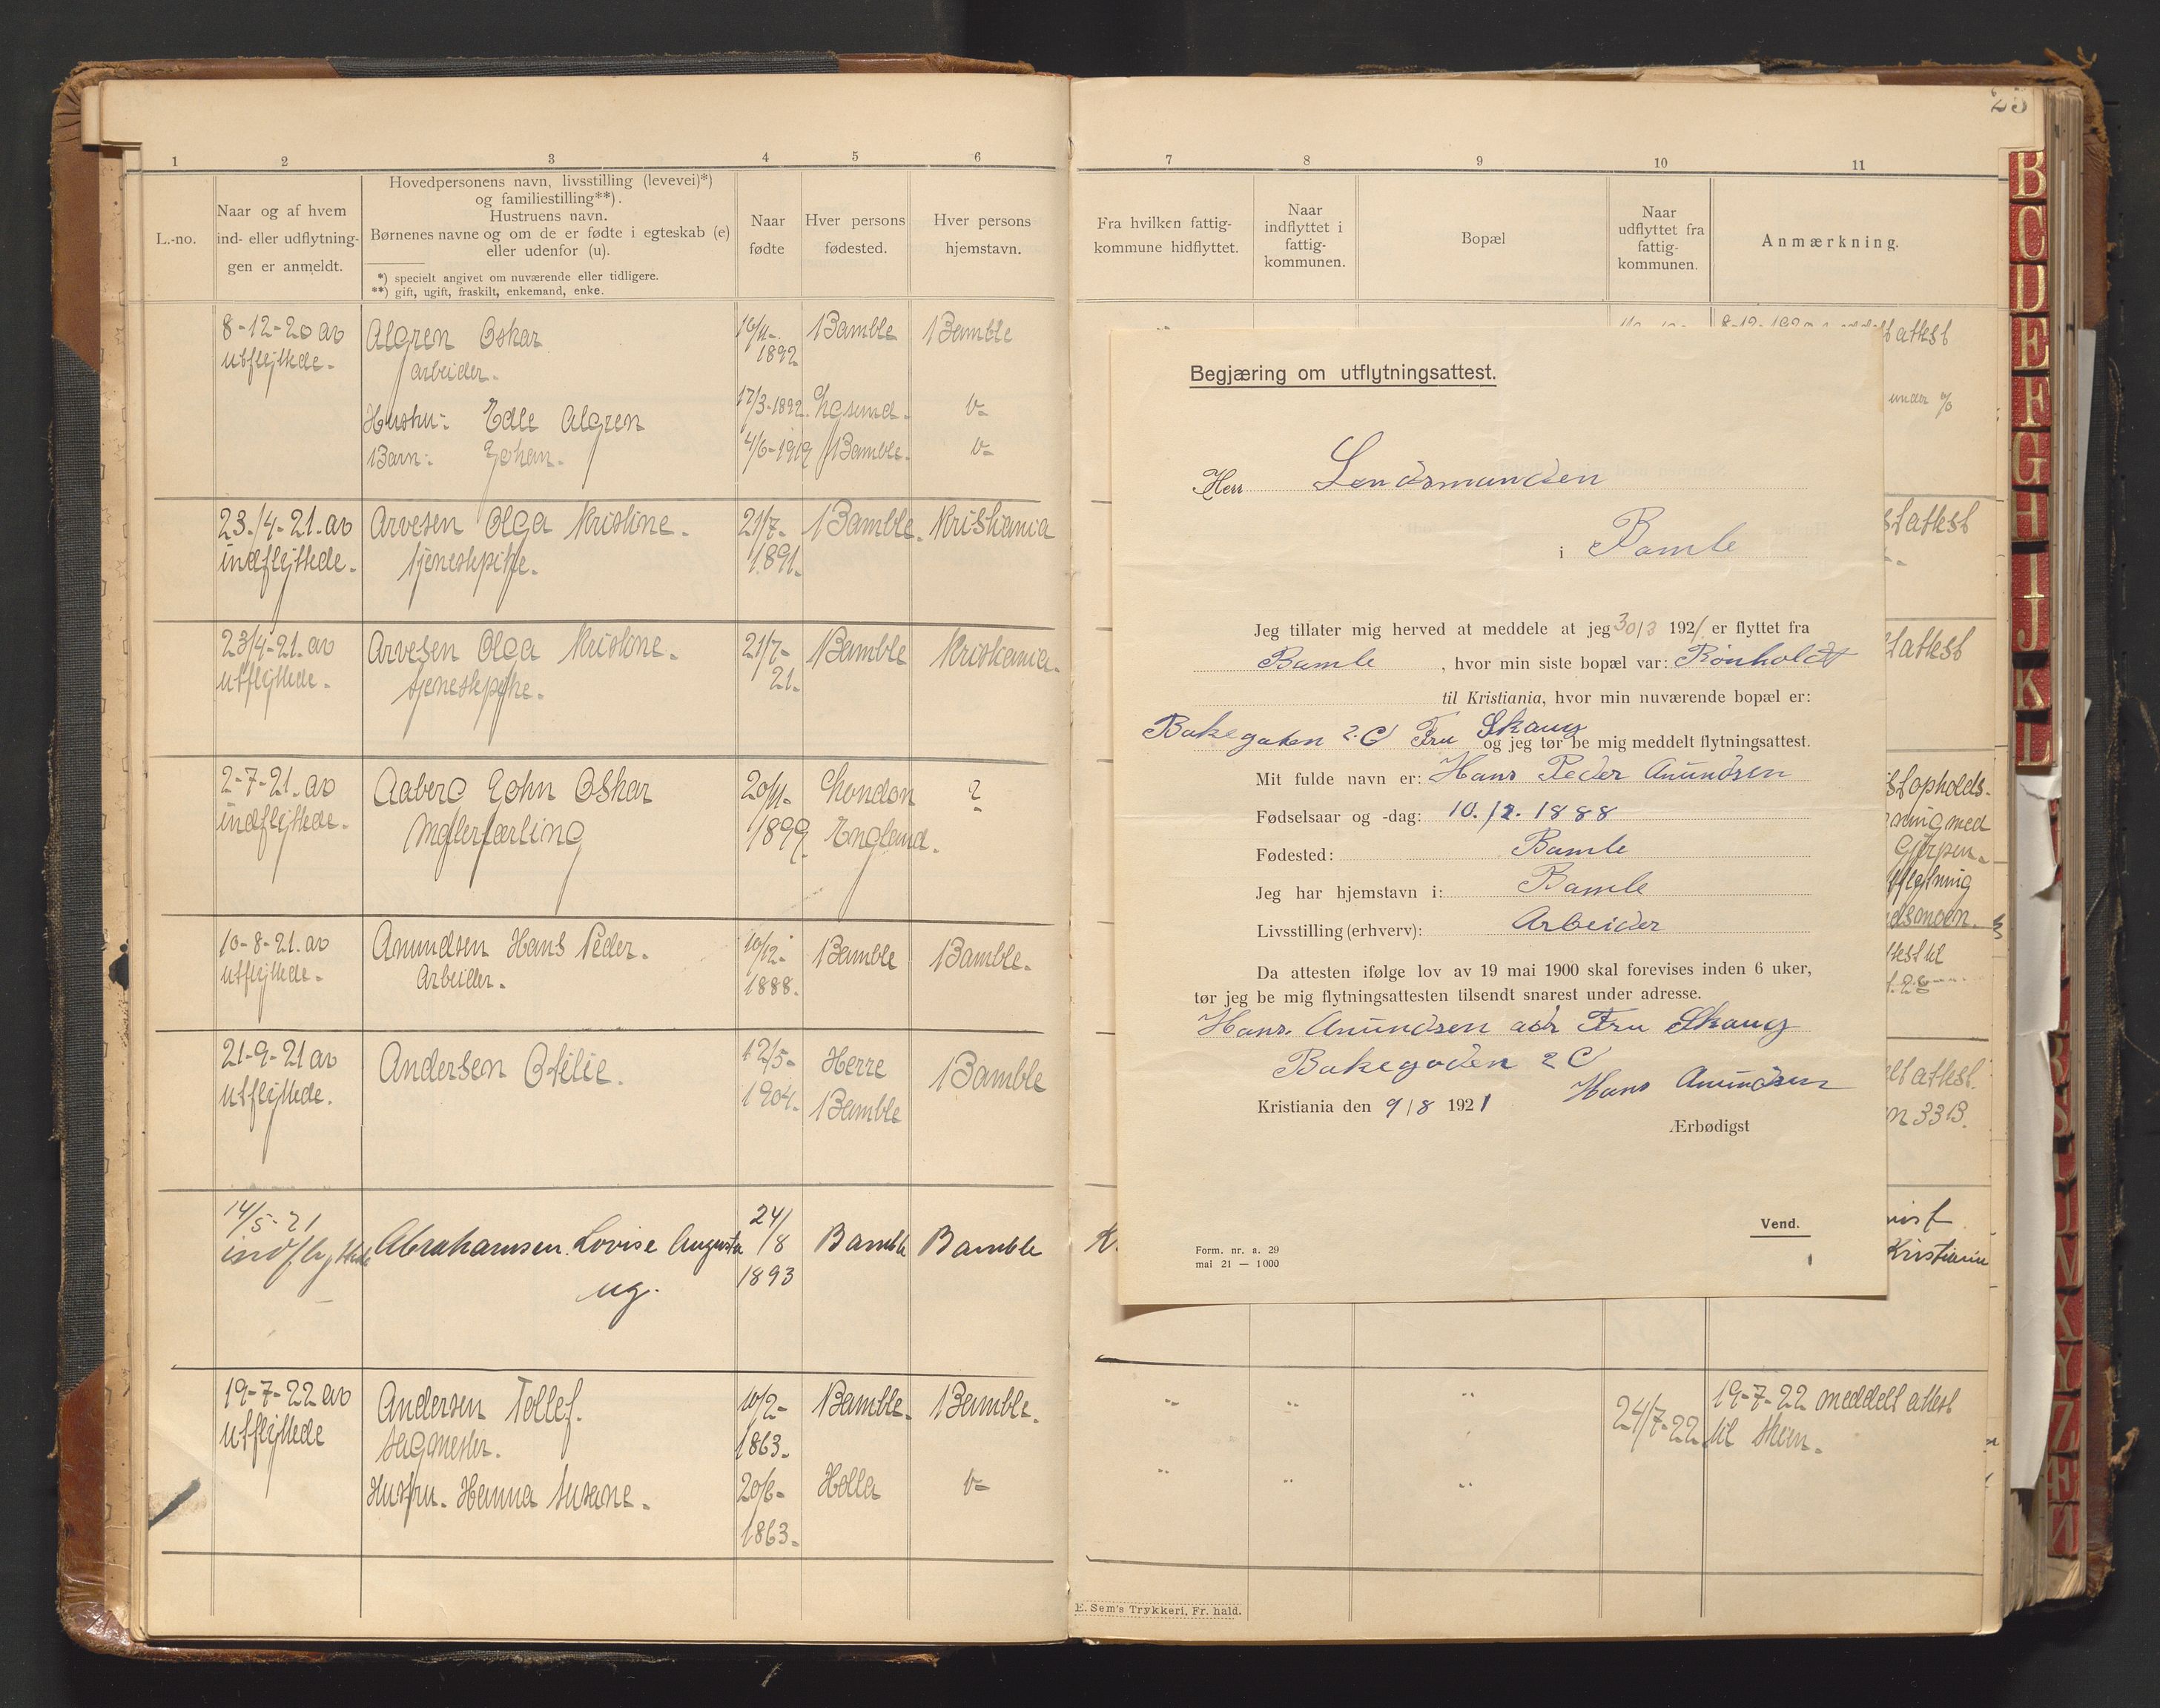 1 2 3 4 5 6
L.-no.
Naar og af hvem
ind- eller udflytnin-
gen er anmeldt.
Hovedpersonens navn, livsstilling (levevei)*)
og familiestilling**).
Hustruens navn.
Børnenes navne og om de er fødte i egteskab (e)
eller udenfor (u).
*) specielt angivet om nuværende eller tidligere.
**) gift, ugift, fraskilt, enkemand, enke.
Naar
fødte
Hver persons
fødested.
Hver persons
hjemstavn.
8-12-20 av Algren Oskar 1892 Bamble Bamble
utflyttede. arbeider.
Hustru: Edle Algren 17/3-1892
Barn: Johan. 4/6-1919 Bamble.
23/4-21. av Arvesen Olga Kristine. 21/7- Bamble. Kristiania
indflyttede. tjenestepike. 1891.
23/4-21. av Arvesen Olga Kristine. 21/7- Bamble Kristiania.
utflyttede. tjenestepike. 21.
2-7-21. av Aaberg John Oskar London ?
indflyttede. Mølerlærling 1899. England.
10-8-21. av Anundsen Hans Peder. 10/12- Bamble Bamble.
utflyttede. Arbeider. 1888.
21-9-21 av Andersen Otilie. 12/5- Herre Bamble
utflyttede. 1904. Bamble
14/5-21 Abrahamsen Lovise Augusta 24/8 Bamble Bamble
indflyttede ug. 1893
19-7-22 av Andersen Tollef. 10/2- Bamble. Bamble.
utflyttede sagmester. 1863.
Hustru. Hanna Susane. 20/6- Holla
1863.
7 8 9 10 11
Fra hvilken fattig-
kommune hidflyttet.
Naar
indflyttet i
fattig-
kommunen.
Bopæl
Naar
udflyttet fra
fattig-
kommunen.
Anmærkning.
attest
under
attest
attest
opholds-
med
Gjerpen.
attest.
33 B.
Kristiania
24/7-22 19-7-22 meddelt attest
til Skien.
E. Sem's Trykkeri, Fr. hald.
Begjæring om utflytningsattest.
Herr Lendsmandsen
i Bamle
Jeg tillater mig herved at meddele at jeg 30/3 1921 er flyttet fra
Bamle, hvor min siste bopæl var: Rönholdt
til Kristiania, hvor min nuværende bopæl er:
Bakegaten 2. C Fru Skaug
og jeg tør be mig meddelt flytningsattest.
Mit fulde navn er: Hans Peder Anundsen
Fødselsaar og -dag: 10. 12. 1888
Fødested: Bamle
Jeg har hjemstavn i: Bamle
Livsstilling (erhverv): Arbeider
Da attesten ifølge lov av 19 mai 1900 skal forevises inden 6 uker,
tør jeg be mig flytningsattesten tilsendt snarest under adresse.
Hans. Anundsen adr Fru Skaug
Bakegaden 2 C
Hans Anundsen
Kristiania den 9/8 1921
Ærbødigst
Vend.
Form. nr. a. 29
mai 21 — 1000
B
C
D
E
F
G
H
I
J
K
L